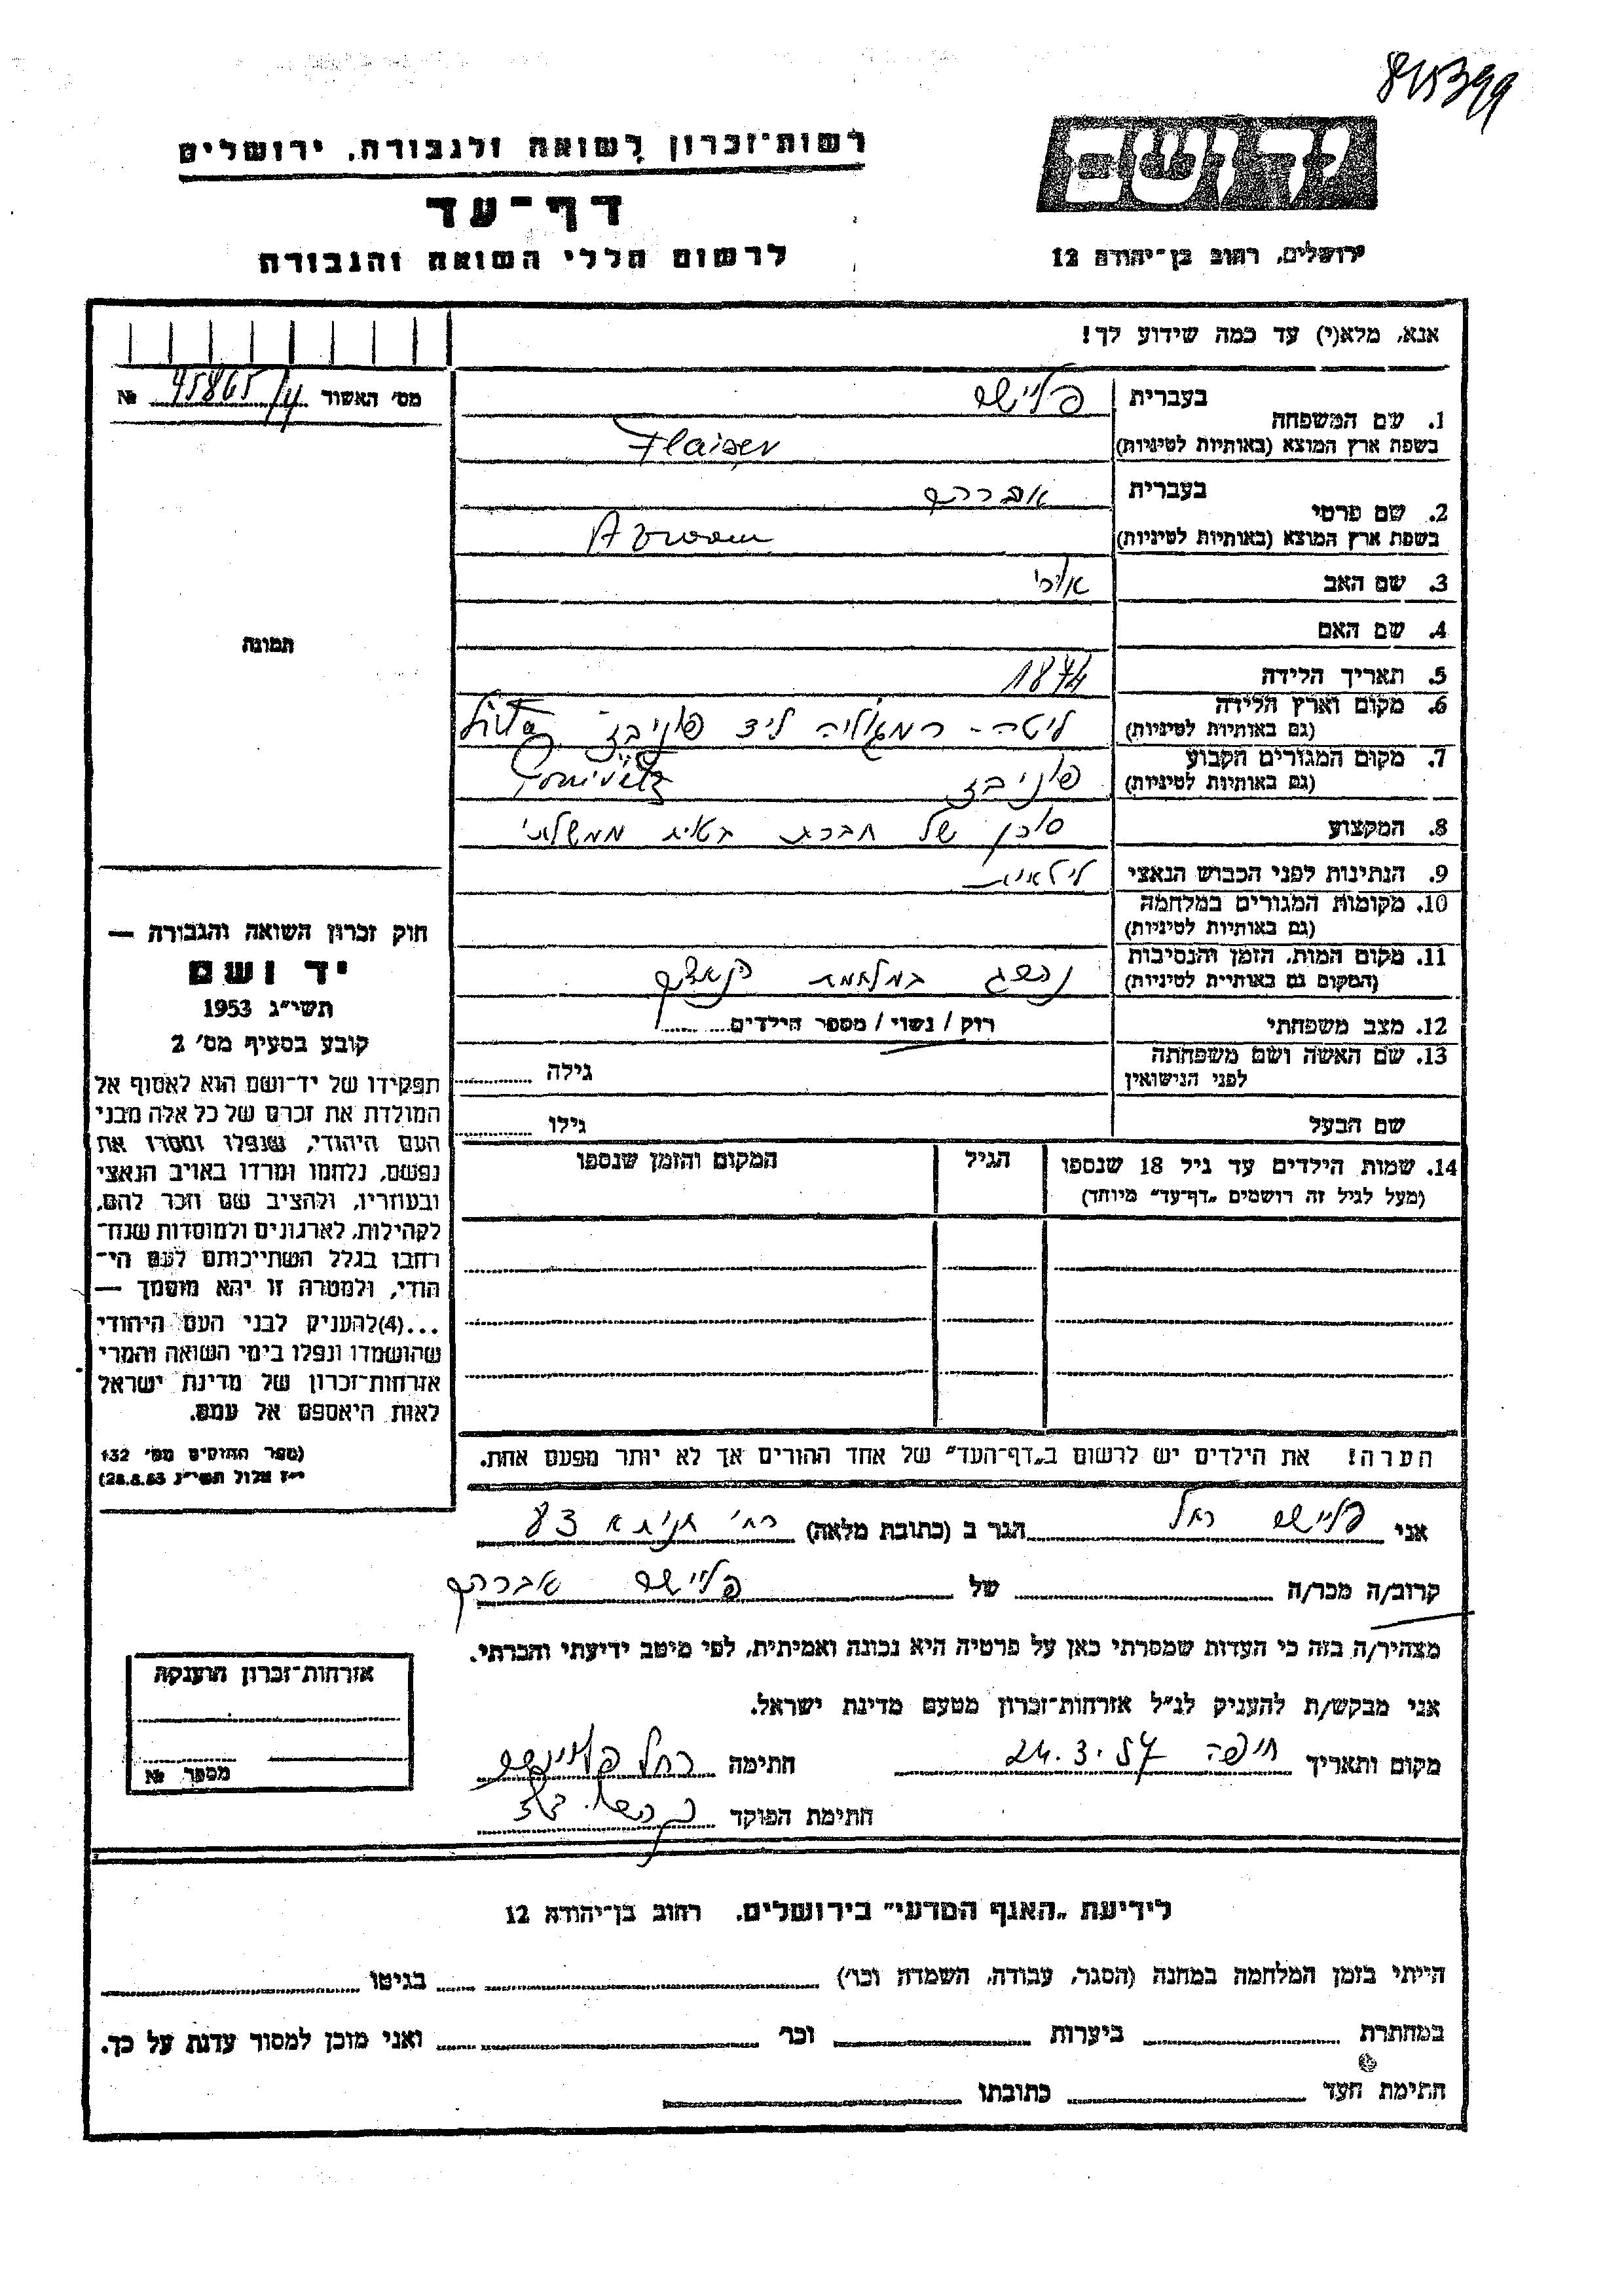 845399
רשות־זכרון לשואה ולגבורה, ירושלים
דף־עד
לרשום חללי השואה והגבורה
יד ושם
ירושלים, רחוב בן־יהודה 12
אנא, מלא(י) עד כמה שידוע לך!
מס׳ האשור 45865/4 №
תמונה
1. שם המשפחה
בעברית
בשפת ארץ המוצא (באותיות לטיניות) Flaiser
2. שם פרטי
בעברית אברהם
בשפת ארץ המוצא (באותיות לטיניות)
3. שם האב אורי
4. שם האם
5. תאריך הלידה 1874
6. מקום וארץ הלידה
(גם באותיות לטיניות) ליטה - ליד פוניבז Lita
7. מקום המגורים הקבוע
(גם באותיות לטיניות) פוניבז
8. המקצוע סוכן של חברת ממשלתי
9. הנתינות לפני הכבוש הנאצי ליטאית
10. מקומות המגורים במלחמה
(גם באותיות לטיניות)
11. מקום המות, הזמן והנסיבות
(המקום גם באותיית לטיניות) נהרג במלחמת
12. מצב משפחתי רוק / נשוי / מספר הילדים
13. שם האשה ושם משפחתה
לפני הנישואין גילה
שם הבעל גילו
14. שמות הילדים עד גיל 18 שנספו
(מעל לגיל זה רושמים „דף־עד״ מיוחד)
הגיל
המקום והזמן שנספו
הערה! את הילדים יש לרשום ב„דף־העד״ של אחד ההורים אך לא יותר מפעם אחת.
חוק זכרון השואה והגבורה —
יד ושם
תשי״ג 1953
קובע בסעיף מס׳ 2
תפקידו של יד־ושם הוא לאסוף אל
המולדת את זכרם של כל אלה מבני
העם היהודי, שנפלו ומסרו את
נפשם, נלחמו ומרדו באויב הנאצי
ובעוזריו, ולהציב שם וזכר להם,
לקהילות, לארגונים ולמוסדות שנח־
רחבו בגלל השתייכותם לעם הי־
הודי, ולמטרה זו יהא מוסמך —
...(4)להעניק לבני העם היהודי
שהושמדו ונפלו בימי השואה והמרי
אזרחות־זכרון של מדינת ישראל
לאות היאספם אל עמם.
(ספר החוקים מס׳ 132
י״ז אלול תשי״ג 28.8.53)
אני רחל הגר ב (כתובת מלאה) רח׳
קרוב/ה מכר/ה של אברהם
מצהיר/ה בזה כי העדות שמסרתי כאן על פרטיה היא נכונה ואמיתית, לפי מיטב ידיעתי והכרתי.
אני מבקש/ת להעניק לנ״ל אזרחות־זכרון מטעם מדינת ישראל.
מקום ותאריך חיפה 24.3.57 חתימה רחל
חתימת הפוקד
אזרחות־זכרון הוענקה
מספר №
לידיעת „האגף המדעי״ בירושלים, רחוב בן־יהודה 12
הייתי בזמן המלחמה במחנה (הסגר, עבודה, השמדה וכר׳) בגיטו
במחתרת ביערות וכר׳ ואני מוכן למסור עדות על כך.
חתימת העד כתובתו